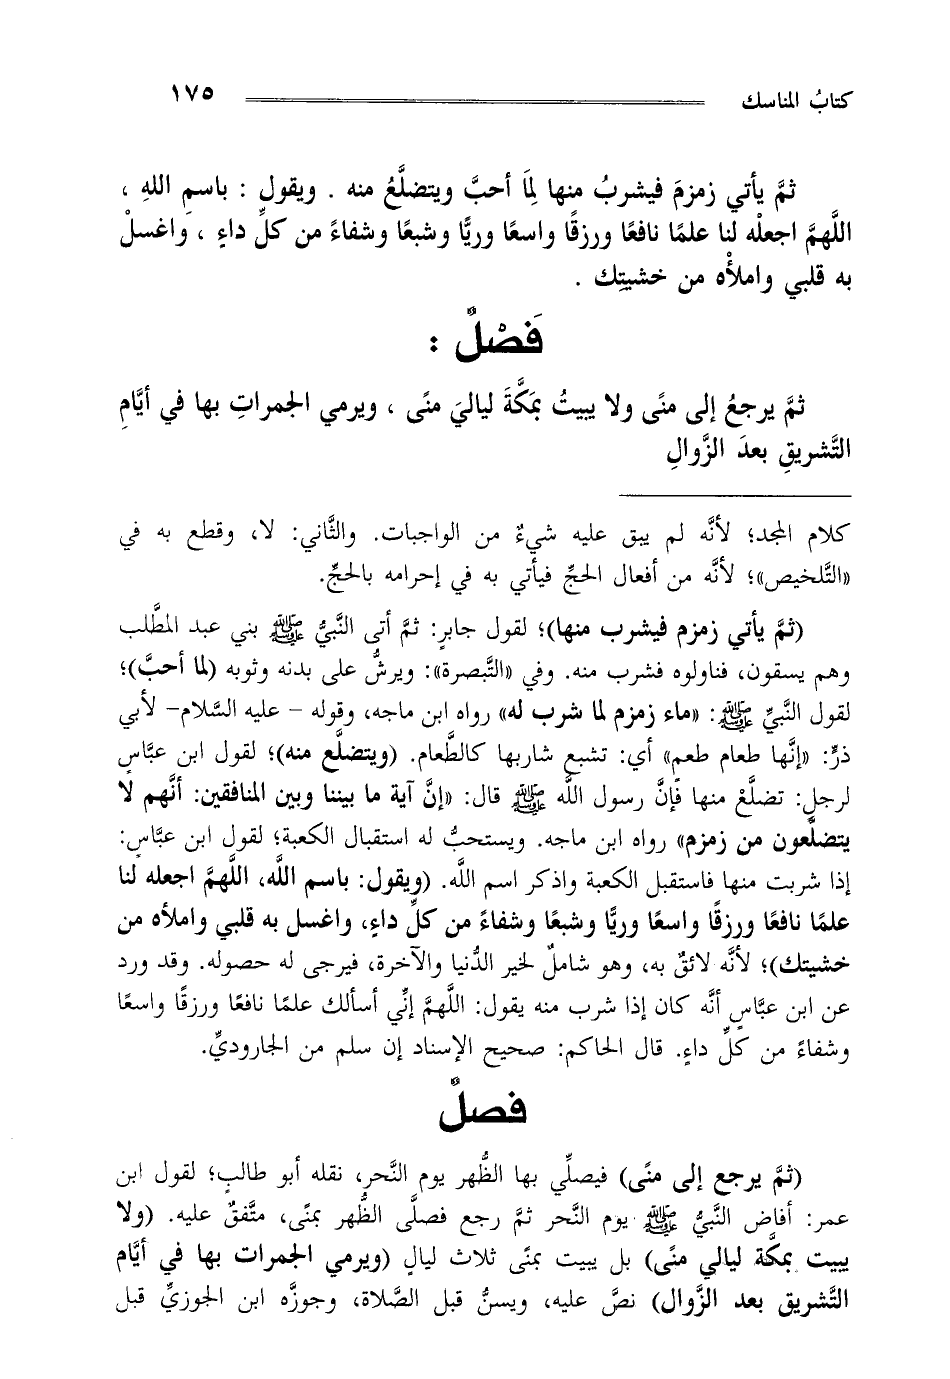 كتابُ المناسك ١٧٥
ثمَّ يأتي زمزمَ فيشربُ منها لِمَا أحبَّ ويتضلَّعُ منه . ويقول : باسمِ اللهِ ،
اللَّهمَّ اجعلْه لنا علمًا نافعًا ورزقًا واسعًا وريًّا وشبعًا وشفاءً من كلِّ داءٍ ، واغسلْ
به قلبي واملأْه من خشيتِك .
فَصْلٌ :
ثمَّ يرجعُ إلى منًى ولا يبيتُ بمَكَّةَ لياليَ منًى ، ويرمي الجمراتِ بها في أيَّامِ
التَّشريقِ بعدَ الزَّوالِ
كلام المجد؛ لأنَّه لم يبق عليه شيءٌ من الواجبات. والثَّاني: لا، وقطع به في
«التَّلخيص»؛ لأنَّه من أفعال الحجِّ فيأتي به في إحرامه بالحجِّ.
(ثمَّ يأتي زمزم فيشرب منها)؛ لقول جابرٍ: ثمَّ أتى النَّبيُّ ﷺ بني عبد المطَّلب
وهم يسقون، فناولوه فشرب منه. وفي «التَّبصرة»: ويرشُّ على بدنه وثوبه (لما أحبَّ)؛
لقول النَّبيِّ ﷺ: «ماء زمزم لما شرب له» رواه ابن ماجه، وقوله - عليه السَّلام- لأبي
ذرٍّ: «إنَّها طعام طعم» أي: تشبع شاربها كالطَّعام. (ويتضلَّع منه)؛ لقول ابن عبَّاسٍ
لرجلٍ: تضلَّعْ منها فإنَّ رسول اللَّه ﷺ قال: «إنَّ آية ما بيننا وبين المنافقين: أنَّهم لا
يتضلَّعون من زمزم» رواه ابن ماجه. ويستحبُّ له استقبال الكعبة؛ لقول ابن عبَّاسٍ:
إذا شربت منها فاستقبل الكعبة واذكر اسم اللَّه. (ويقول: باسم اللَّه، اللَّهمَّ اجعله لنا
علمًا نافعًا ورزقًا واسعًا وريًّا وشبعًا وشفاءً من كلِّ داءٍ، واغسل به قلبي واملأه من
خشيتك)؛ لأنَّه لائقٌ به، وهو شاملٌ لخير الدُّنيا والآخرة، فيرجى له حصوله. وقد ورد
عن ابن عبَّاسٍ أنَّه كان إذا شرب منه يقول: اللَّهمَّ إنِّي أسألك علمًا نافعًا ورزقًا واسعًا
وشفاءً من كلِّ داءٍ. قال الحاكم: صحيح الإسناد إن سلم من الجاروديِّ.
فصلٌ
(ثمَّ يرجع إلى منًى) فيصلِّي بها الظُّهر يوم النَّحر، نقله أبو طالبٍ؛ لقول ابن
عمر: أفاض النَّبيُّ ﷺ يوم النَّحر ثمَّ رجع فصلَّى الظُّهر بمنًى، متَّفقٌ عليه. (ولا
يبيت بمكَّة ليالي منًى) بل يبيت بمنًى ثلاث ليالٍ (ويرمي الجمرات بها في أيَّام
التَّشريق بعد الزَّوال) نصَّ عليه، ويسنُّ قبل الصَّلاة، وجوزَّه ابن الجوزيِّ قبل